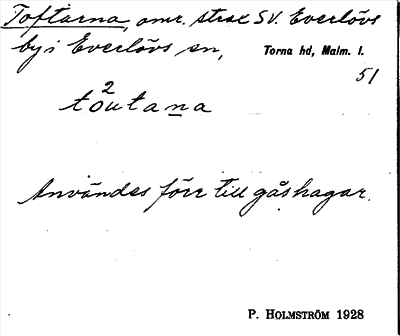 Toftarna, omr. strax SV. Everlövs
by i Everlövs sn, Torna hd, Malm. l.
51
2
toutana
Användes förr till gåshagar.
P. HOLMSTRÖM 1928